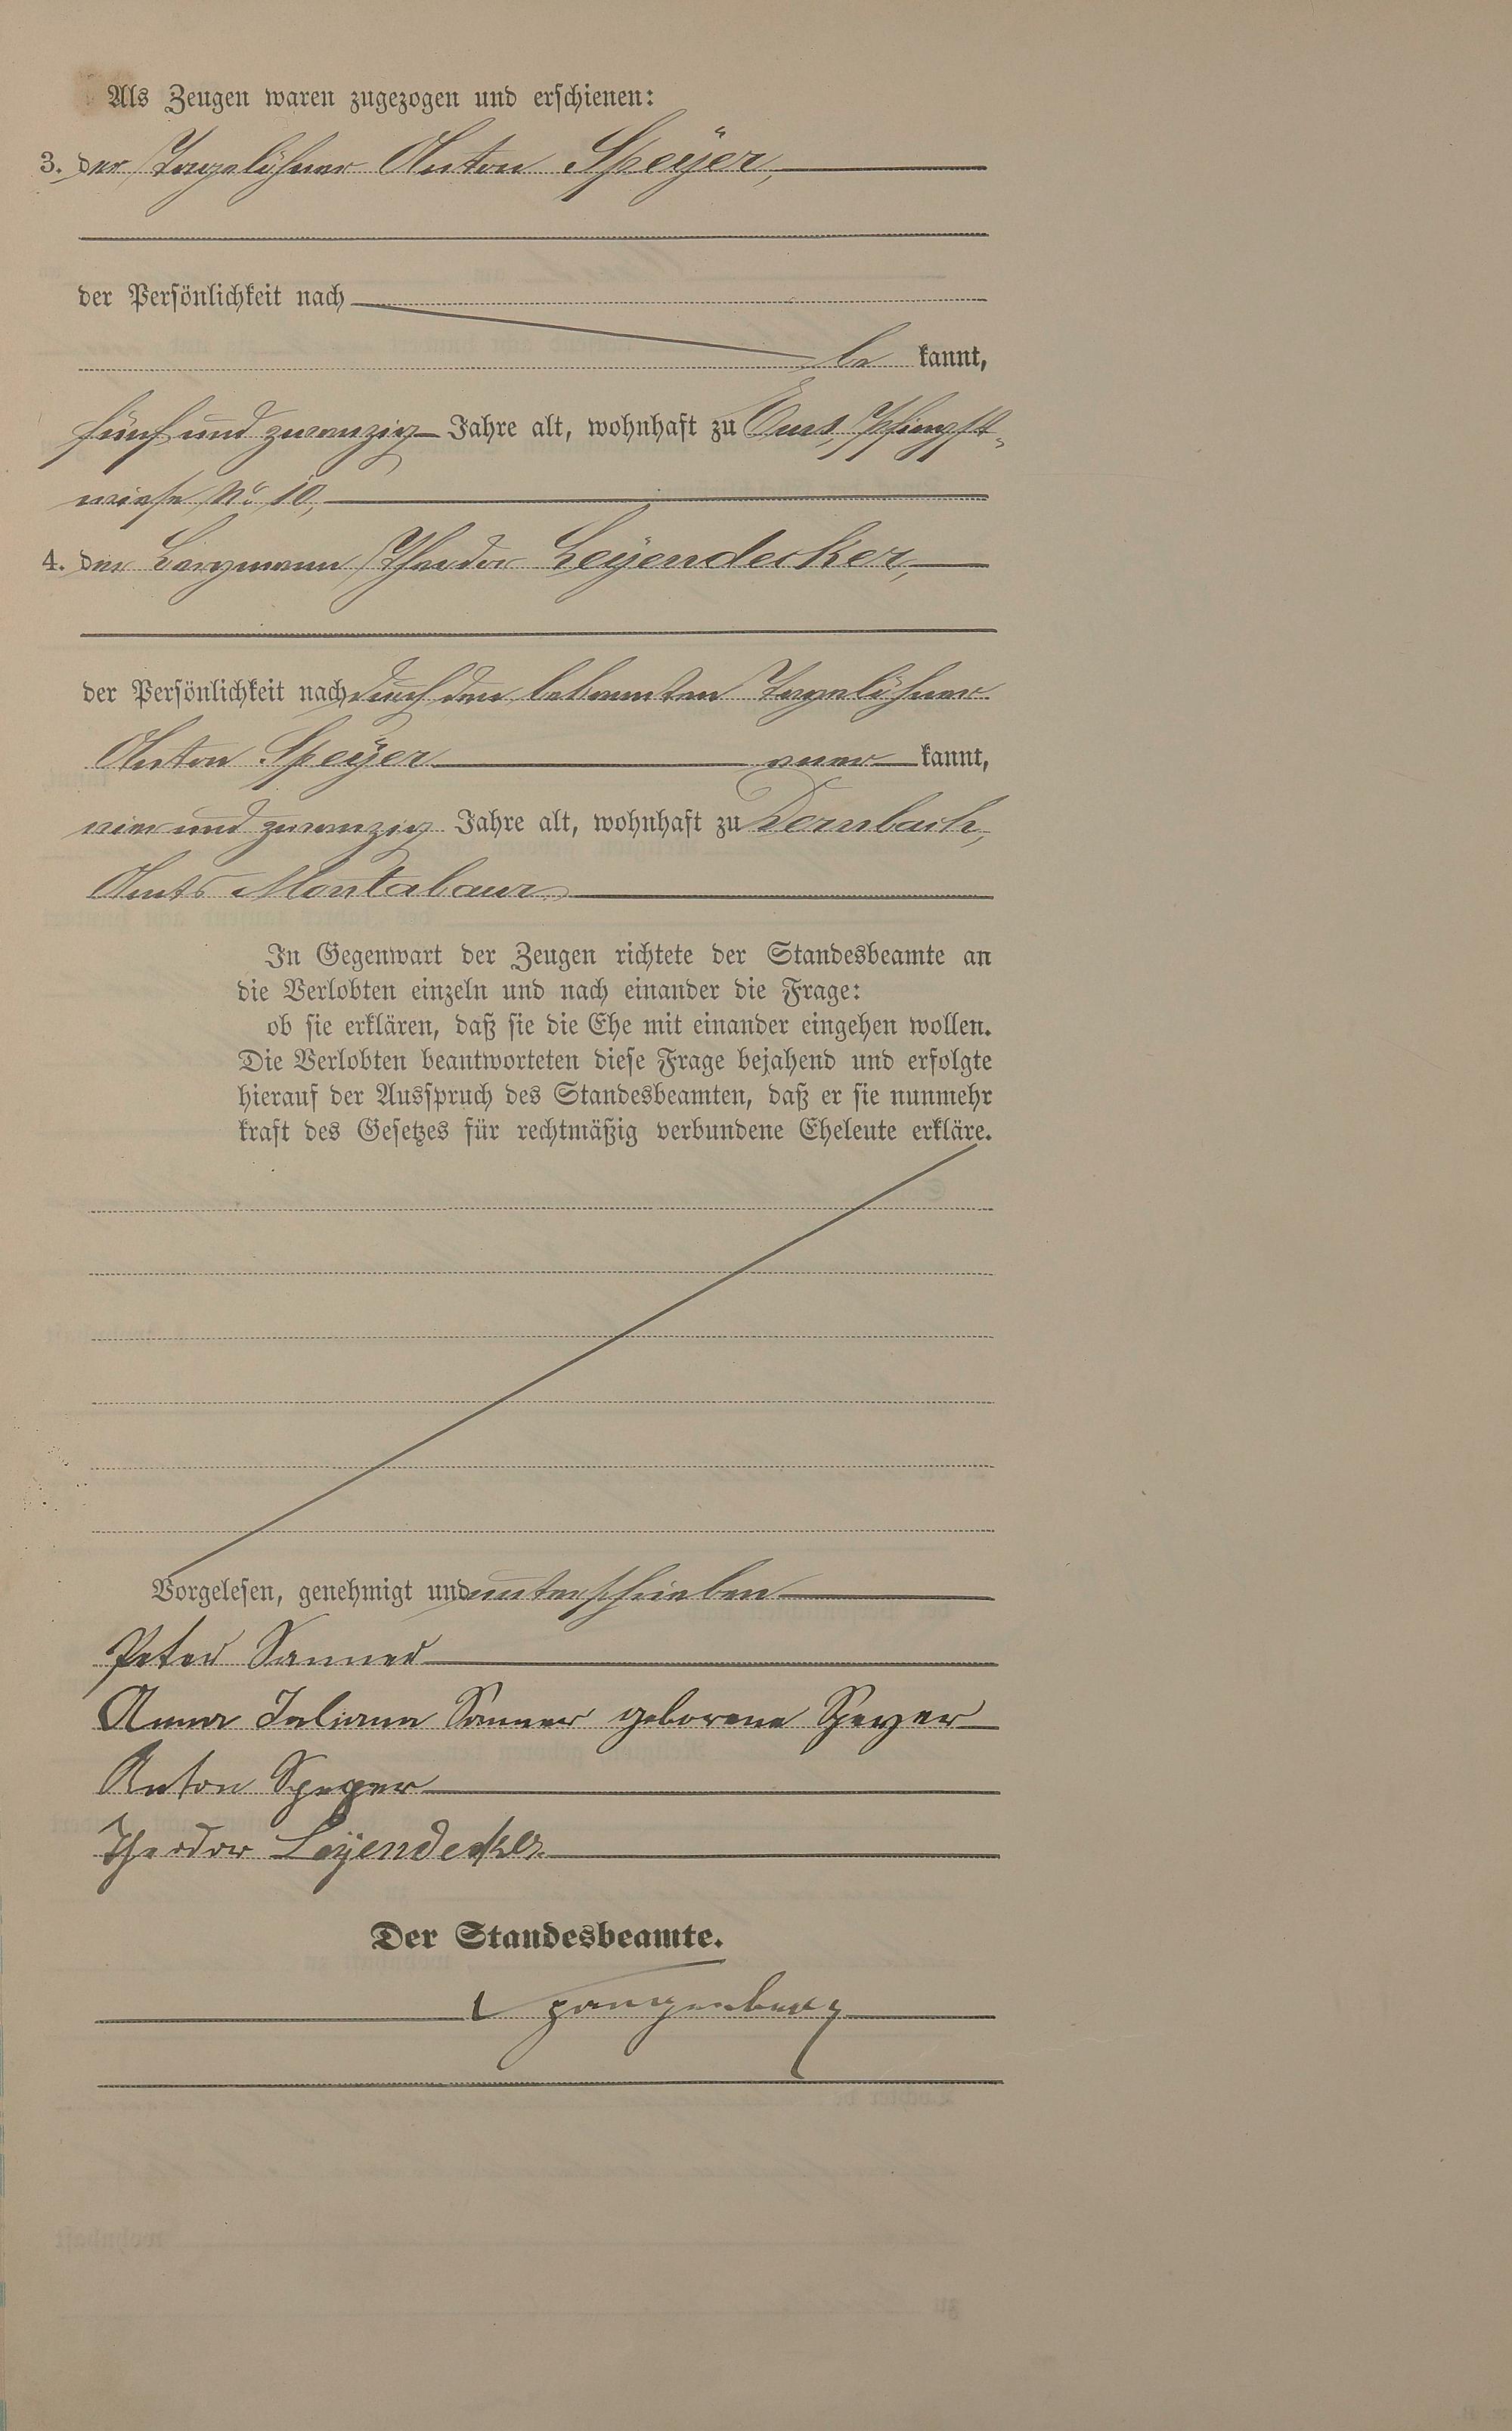 Als Zeugen waren zugezogen und erschienen:
3. der Tagelöhner Anton Speÿer,
der Persönlichkeit nach
be kannt,
fünf und zwanzig Jahre alt, wohnhaft zu Ems, Pfingst-
wiese No. 10,
4. der Bergmann Theodor Leÿendecker,
der Persönlichkeit nach durch den bekannten Tagelöhner
Anton Speÿer aner kannt,
vier und zwanzig Jahre alt, wohnhaft zu Dernbach,
Amts Montabaur.
In Gegenwart der Zeugen richtete der Standesbeamte an
die Verlobten einzeln und nach einander die Frage:
ob sie erklären, daß sie die Ehe mit einander eingehen wollen.
Die Verlobten beantworteten diese Frage bejahend und erfolgte
hierauf der Ausspruch des Standesbeamten, daß er sie nunmehr
kraft des Gesetzes für rechtmäßig verbundene Eheleute erkläre.
Vorgelesen, genehmigt und unterschrieben
Peter Sanner
Anna Juliana Sanner geborene Speyer
Anton Speyer
Theodor Leÿendecker
Der Standesbeamte.
Spangenberg